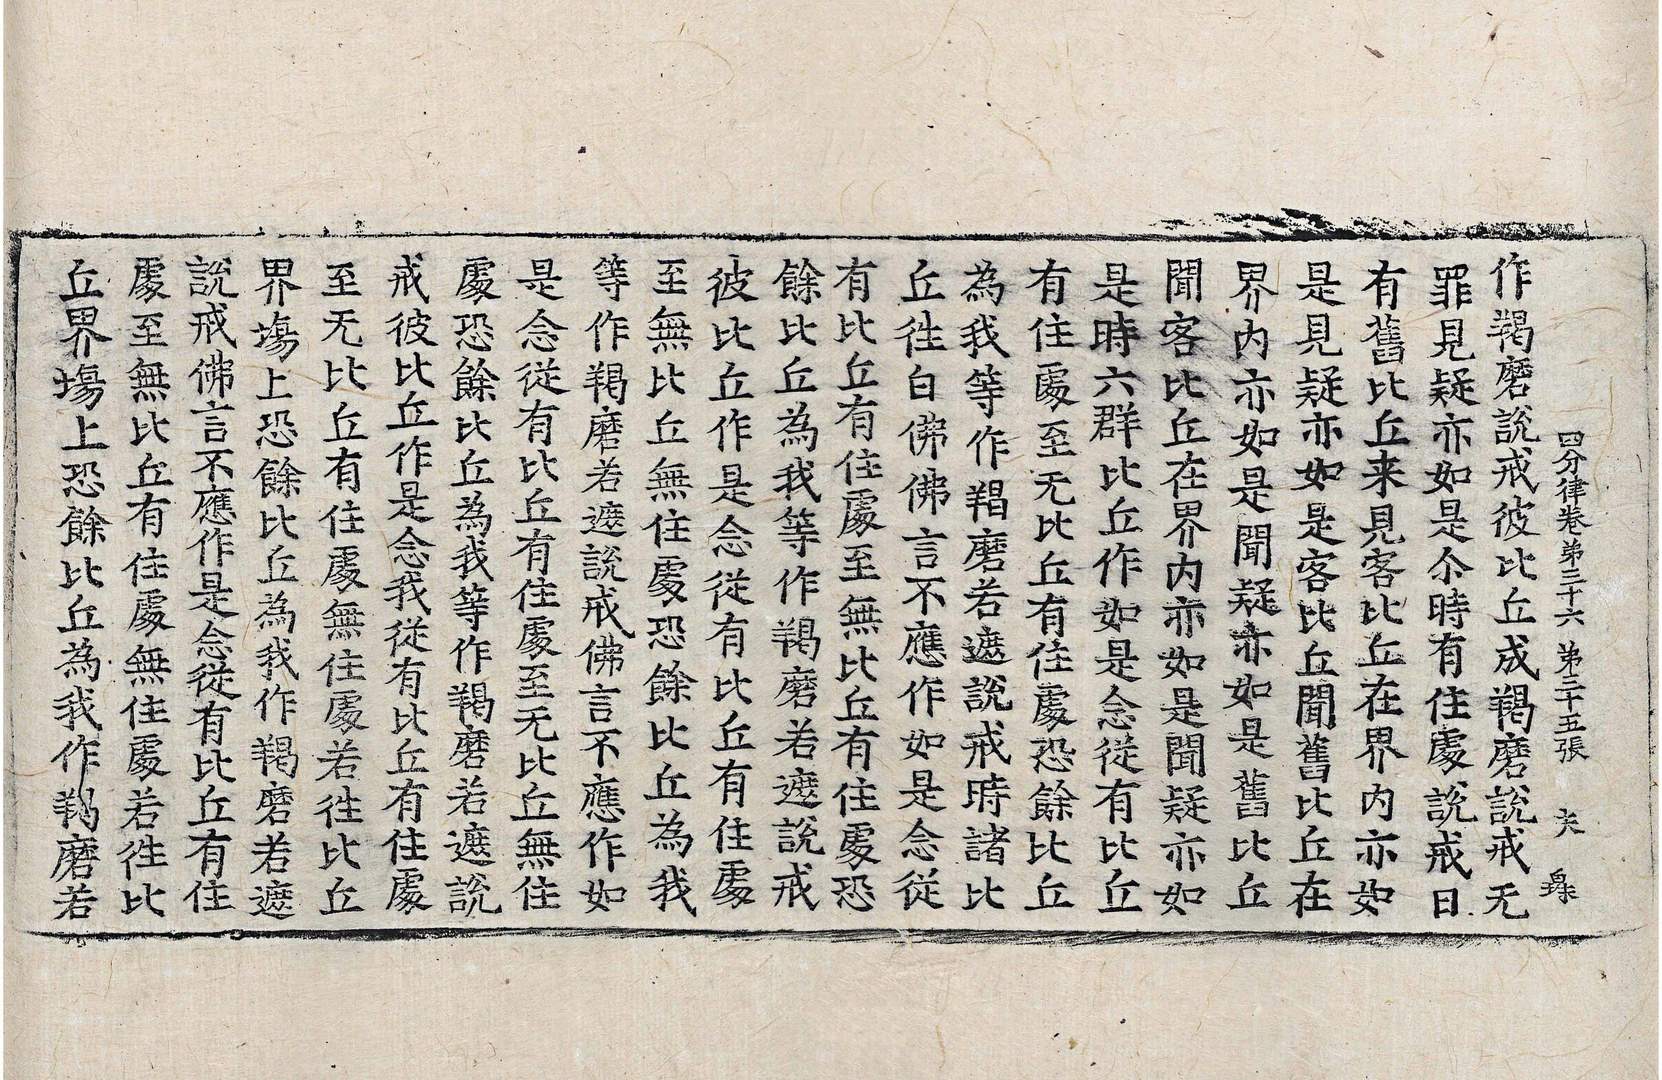 四分律卷第三十六 第三十五張 夫
作羯磨說戒彼比丘成羯磨說戒无
罪見疑亦如是尒時有住處說戒日
有舊比丘来見客比丘在界內亦如
是見疑亦如是客比丘聞舊比丘在
界內亦如是聞疑亦如是舊比丘
聞客比丘在界內亦如是聞疑亦如
是時六群比丘作如是念從有比丘
有住處至无比丘有住處恐餘比丘
為我等作羯磨若遮說戒時諸比
丘徃白佛佛言不應作如是念從
有比丘有住處至無比丘有住處恐
餘比丘為我等作羯磨若遮說戒
彼比丘作是念從有比丘有住處
至無比丘無住處恐餘比丘為我
等作羯磨若遮說戒佛言不應作如
是念從有比丘有住處至无比丘無住
處恐餘比丘為我等作羯磨若遮說
戒彼比丘作是念我從有比丘有住處
至无比丘有住處無住處若徃比丘
界場上恐餘比丘為我作羯磨若遮
說戒佛言不應作是念從有比丘有住
處至無比丘有住處無住處若徃比
丘界場上恐餘比丘為我作羯磨若